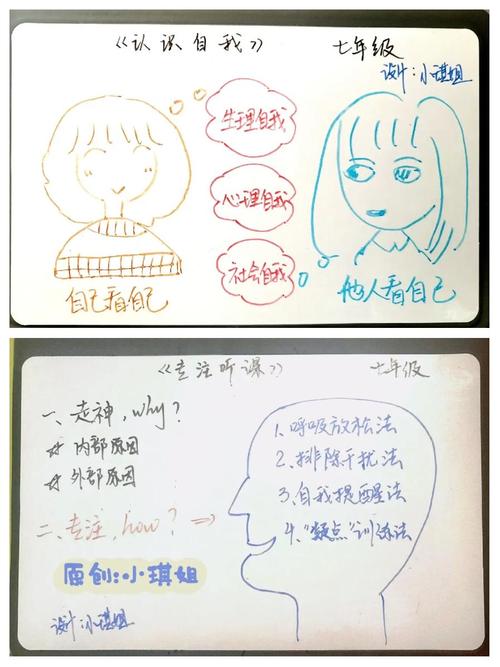 《认识自我》 七年级
设计:小琪姐
生理自我
心理自我
社会自我
自己看自己
他人看自己
《专注听课》 七年级
一、走神,why?
☆ 内部原因
☆ 外部原因
二、专注,how? ⇒
1、呼吸放松法
2、排除干扰法
3、自我提醒法
4、“疑点”训练法
原创:小琪姐
设计:小琪姐